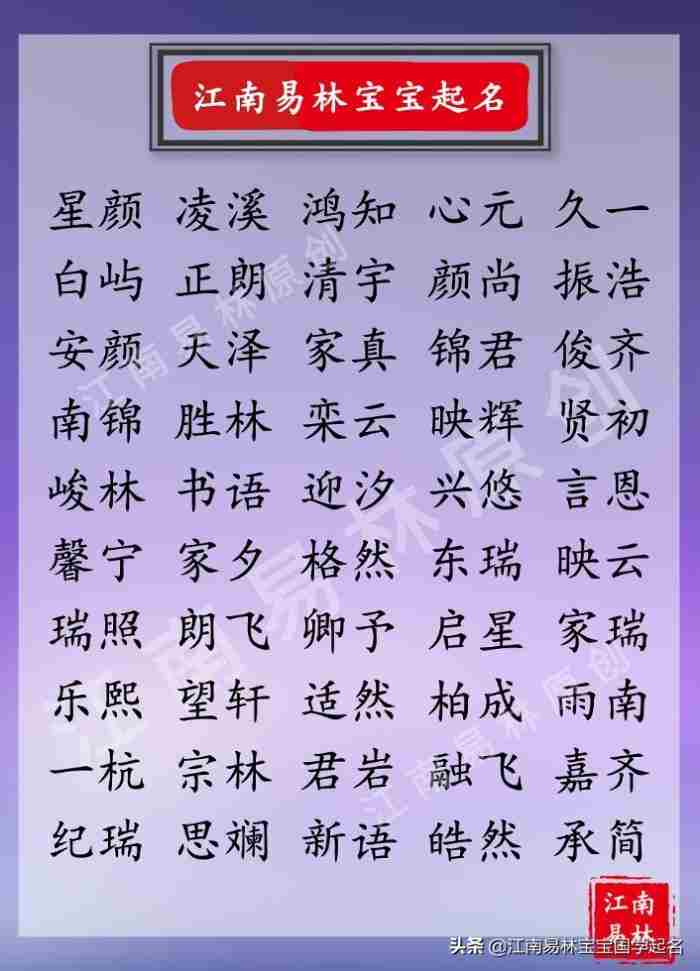 江南易林宝宝起名
星颜 凌溪 鸿知 心元 久一
白屿 正朗 清宇 颜尚 振浩
安颜 天泽 家真 锦君 俊齐
南锦 胜林 栾云 映辉 贤初
峻林 书语 迎汐 兴悠 言恩
馨宁 家夕 格然 东瑞 映云
瑞照 朗飞 卿予 启星 家瑞
乐熙 望轩 适然 柏成 雨南
一杭 宗林 君岩 融飞 嘉齐
纪瑞 思斓 新语 皓然 承简
江南易林原创
江南易林原创
江南易林原创
江南
易林
头条 @江南易林宝宝国学起名